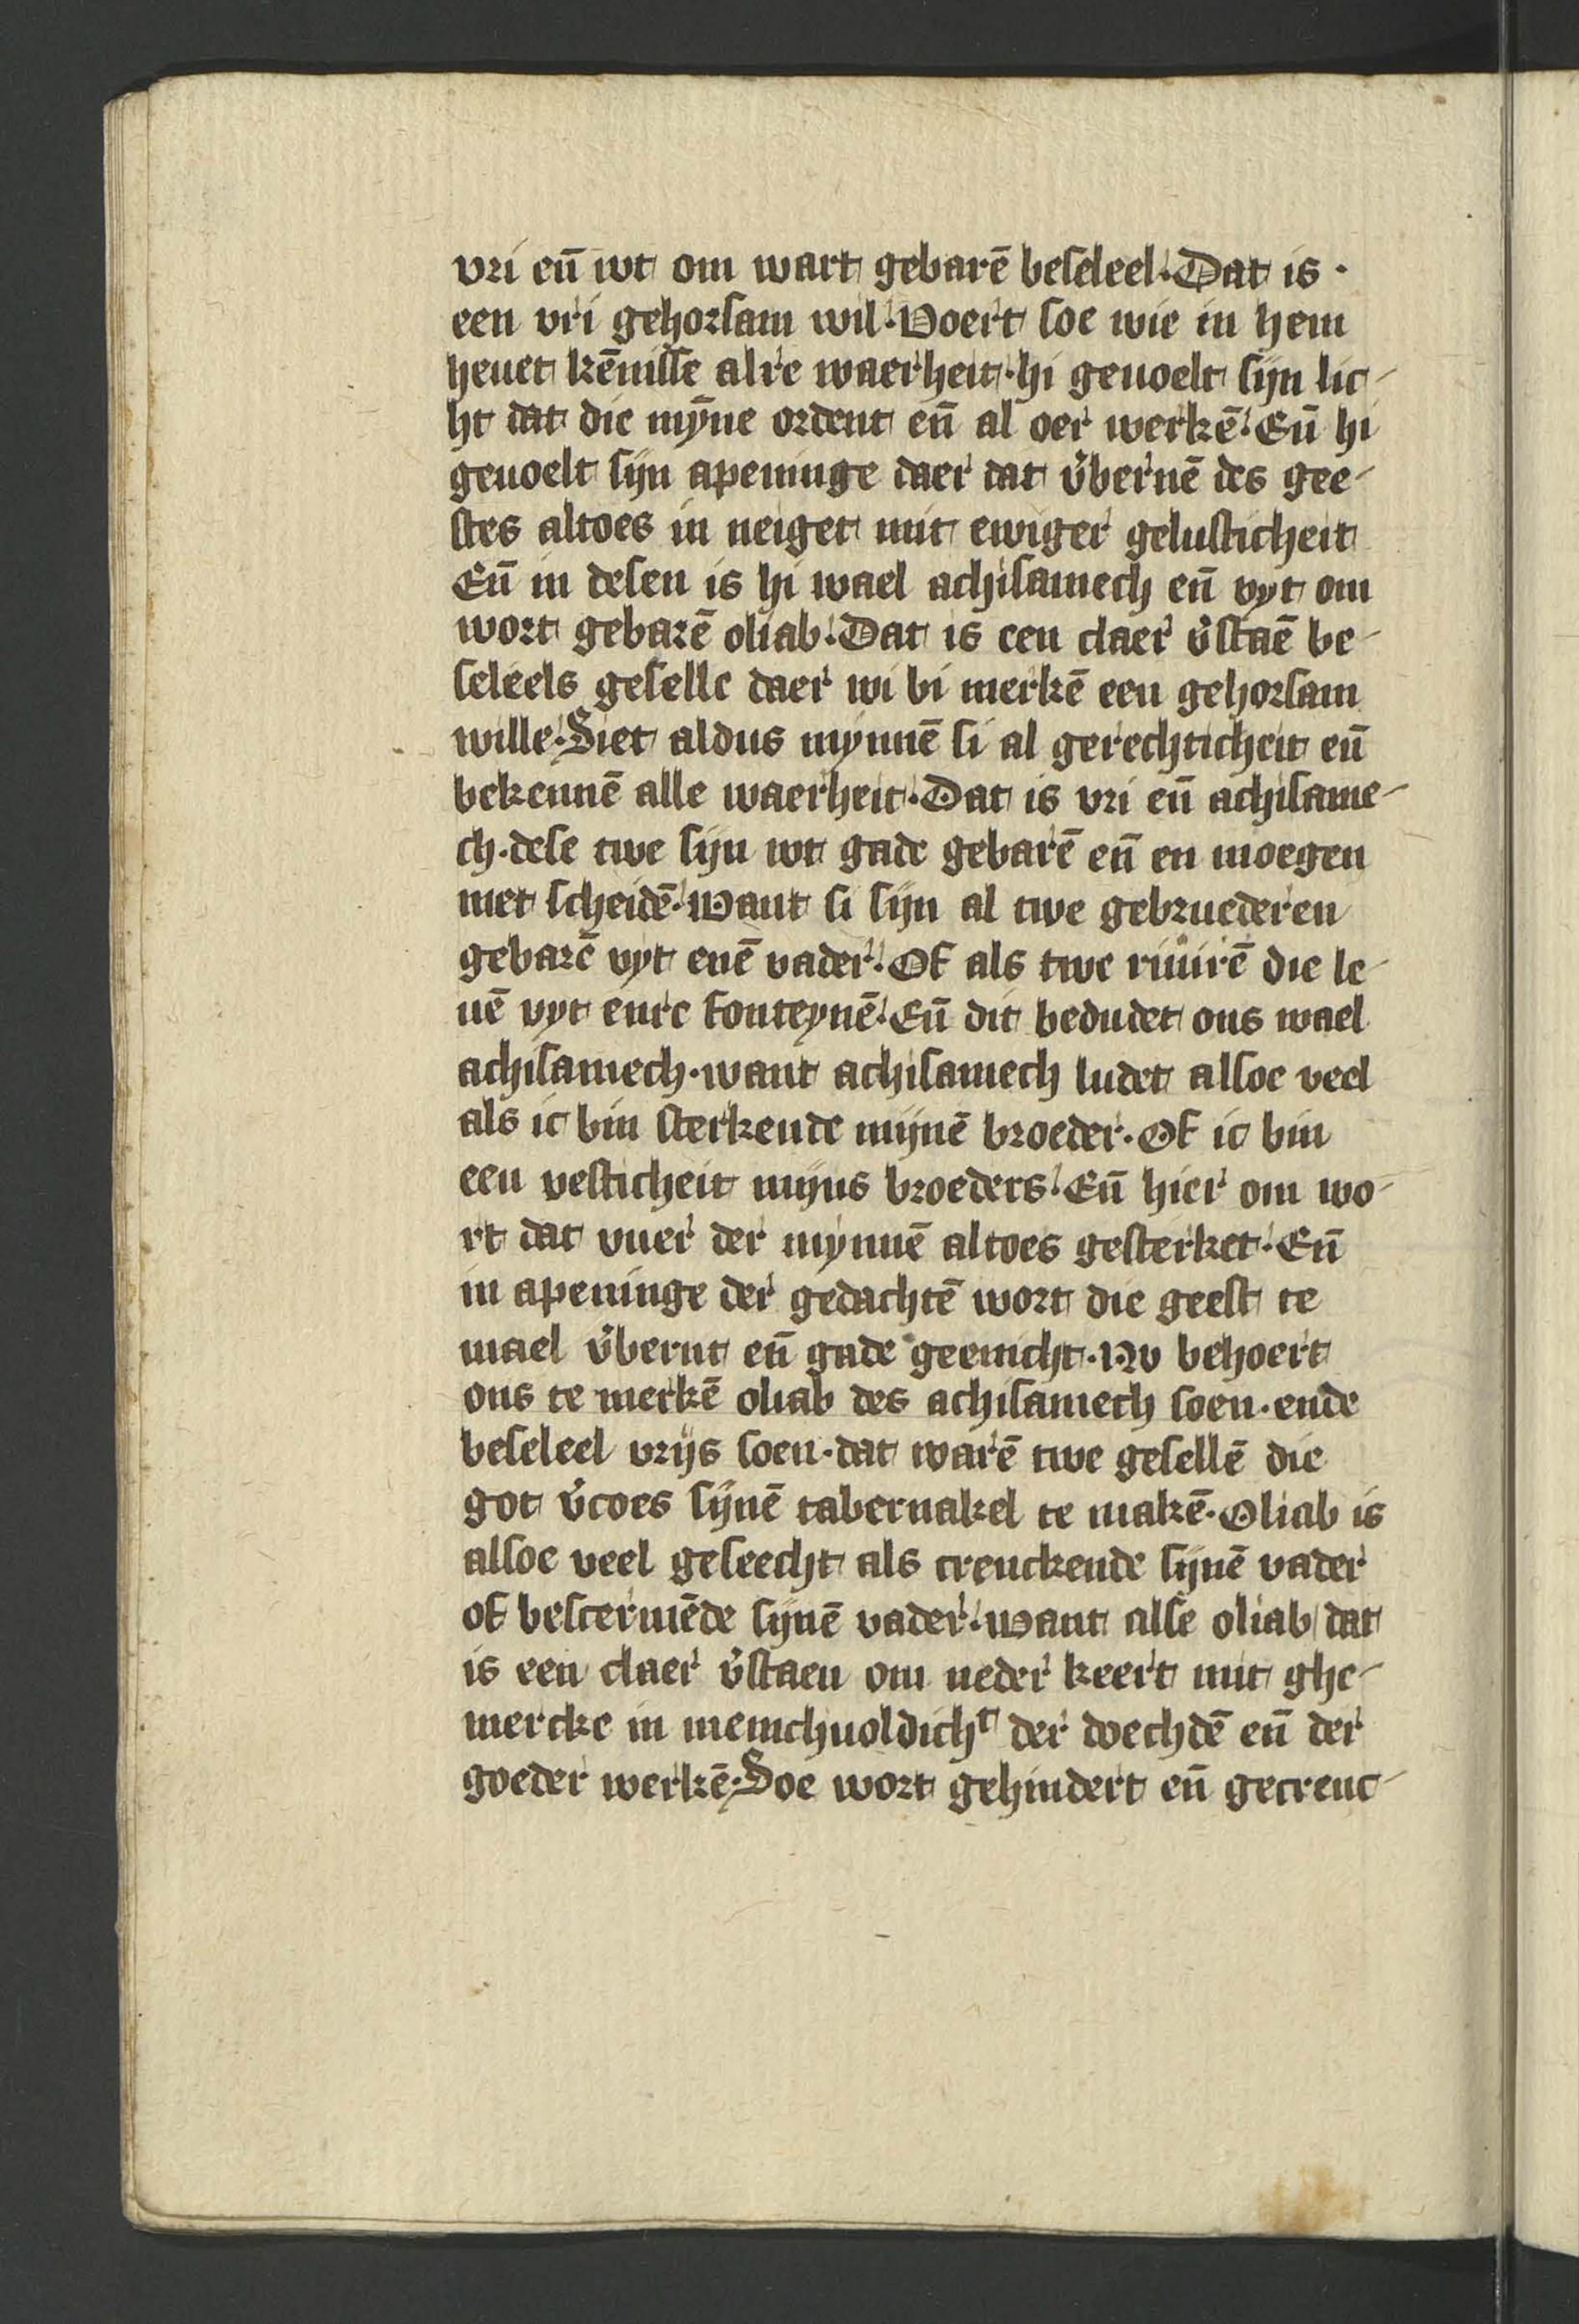 vri en̄ wt om wart gebarē beseleel. Dat is.
een vri gehorsam wil. Voert soe wie in hem
heuet kēnisse alre waerheit. hi geuoelt sijn lic-
ht dat die mȳne ordent en̄ al oer werkē. En̄ hi
geuoelt sijn apeninge daer dat v̓bernē des gee-
stes altoes in neiget mit ewiger gelusticheit
En̄ in desen is hi wael achisamech en̄ vyt om
wort gebarē oliab. Dat is een claer v̓staē be-
seleels geselle daer wi bi merkē een gehorsam
wille. Siet aldus mynnē si al gerechticheit en̄
bekennē alle waerheit. Dat is vri en̄ achisame-
ch. dese twe sijn wt gade gebarē en̄ en moegen
niet scheidē. Want si sijn al twe gebruederen
gebarē vyt enē vader. Of als twe riuirē die le-
uē vyt enre fonteynē. En̄ dit bedudet ons wael
achisamech. want achisamech ludet alsoe veel
als ic bin sterkende mijnē broeder. Of ic bin
een vesticheit mijns broeders. En̄ hier om wo-
rt dat vuer der mynnē altoes gesterket. En̄
in apeninge der gedachtē wort die geest te
mael v̓bernt en̄ gade geenicht. Nv behoert
ons te merkē oliab des achisamech soen. ende
beseleel vrijs soen. dat warē twe gesellē die
got v̓coes sijnē tabernakel te makē. Oliab is
alsoe veel geseecht als crenckende sijnē vader
of bescermēde sijnē vader. Want alse oliab dat
is een claer v̓staen om neder keert mit ghe-
mercke in menichuoldichᵗ der doechdē en̄ der
goeder werkē. Soe wort gehindert en̄ gecrenc-